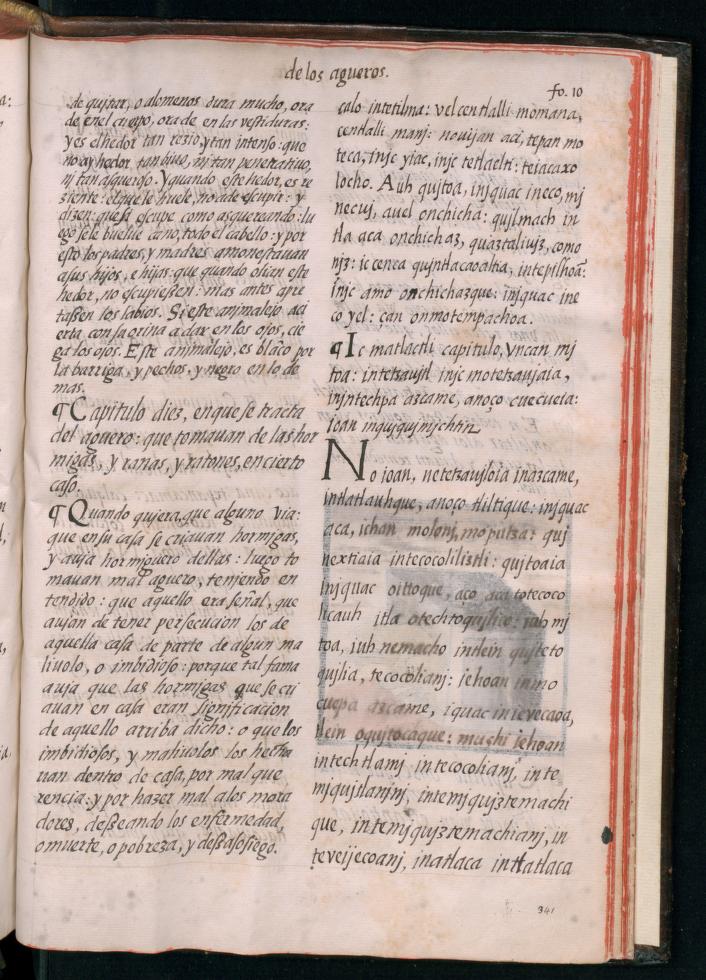 de los agueros.
fo. 10
de quitar, o alomenos dura mucho, ora
de en el cuerpo, ora de en las vestiduras:
y es el hedor tan rezio, y tan intenso: que
no ay hedor tan biuo, nj tan penetratiuo,
nj tan asqueroso. Y quando este hedor, es re
ziente: el que le huele, no a de escupir: y
dizen: que si escupe como asquereando: lu
ego se le buelue cano, todo el cabello: y por
esto los padres, y madres amonestauan
a sus hijos, e hijas: que quando olien este
hedor, no escupiessen: mas antes apre
tassen los labios. Si este anjmalejo aci
erta con su orina a dar en los ojos, cie
ga los ojos. Este anjmalejo, es blāco por
la barriga, y pechos, y negro en lo de
mas.
¶ Capitulo diez, en que se tracta
del aguero: que tomauan de las hor
migas, y ranas, y ratones, en cierto
caso.
¶ Quando quiera, que alguno via:
que en su casa se criauan hormigas,
y auja hormiguero dellas: luego to
mauan mal aguero, tenjendo en
tendido: que aquello era señal, que
aujan de tener persecucion los de
aquella casa de parte de algun ma
liuolo, o imbidioso: porque tal fama
auja que las hormigas que se cri
auan en casa eran significacion
de aquello arriba dicho: o que los
imbidiosos, y maliuolos los hecha
uan dentro de casa, por mal que
rencia: y por hazer mal a los mora
dores, desseando los enfermedad,
o muerte, o pobreza, y desasosiego.
calo intetilma: vel centlalli momana,
centlalli manj: noujian aci, tepan mo
teca, injc yiac, injc tetlaelti: teiacaxo
locho. Auh qujtoa, injquac ineco, mj
necuj, auel onchicha: qujlmach in
tla aca onchichaz, quaztaliujz, como
njz: ic cenca qujntlacaoaltia, intepilhoā:
injc amo onchichazque: injquac ine
co yel: çan onmotempachoa.
¶ Ic matlactli capitulo, vncan mj
toa: intetzaujtl injc motetzaujaia,
injntechpa azcame, anoço cuecueia:
ioan inqujqujmjchtin.
No ioan, netetzaujloia inazcame,
intlatlauhque, anoço tliltique: injquac
aca, ichan molonj, moputza: quj
nextiaia intecocoliliztli: qujtoaia
injquac oittoque, aço aca totecoco
licauh itla otechtoqujlico: iuh mj
toa, iuh nemacho intlein qujteto
qujlia, tecocolianj: iehoan inmo
cuepa azcame, iquac inievecaoa,
tlein oqujtocaque: muchi iehoan
intechtlamj intecocolianj, inte
mjqujtlanjnj, intemjqujztemachi
que, intemjqujztemachianj, in
teveijecoanj, inatlaca intlatlaca
341